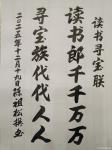 读书寻宝联
读书郎千千万万
寻宝族代代人人
二〇二五年十二月十九日徐祖松撰书